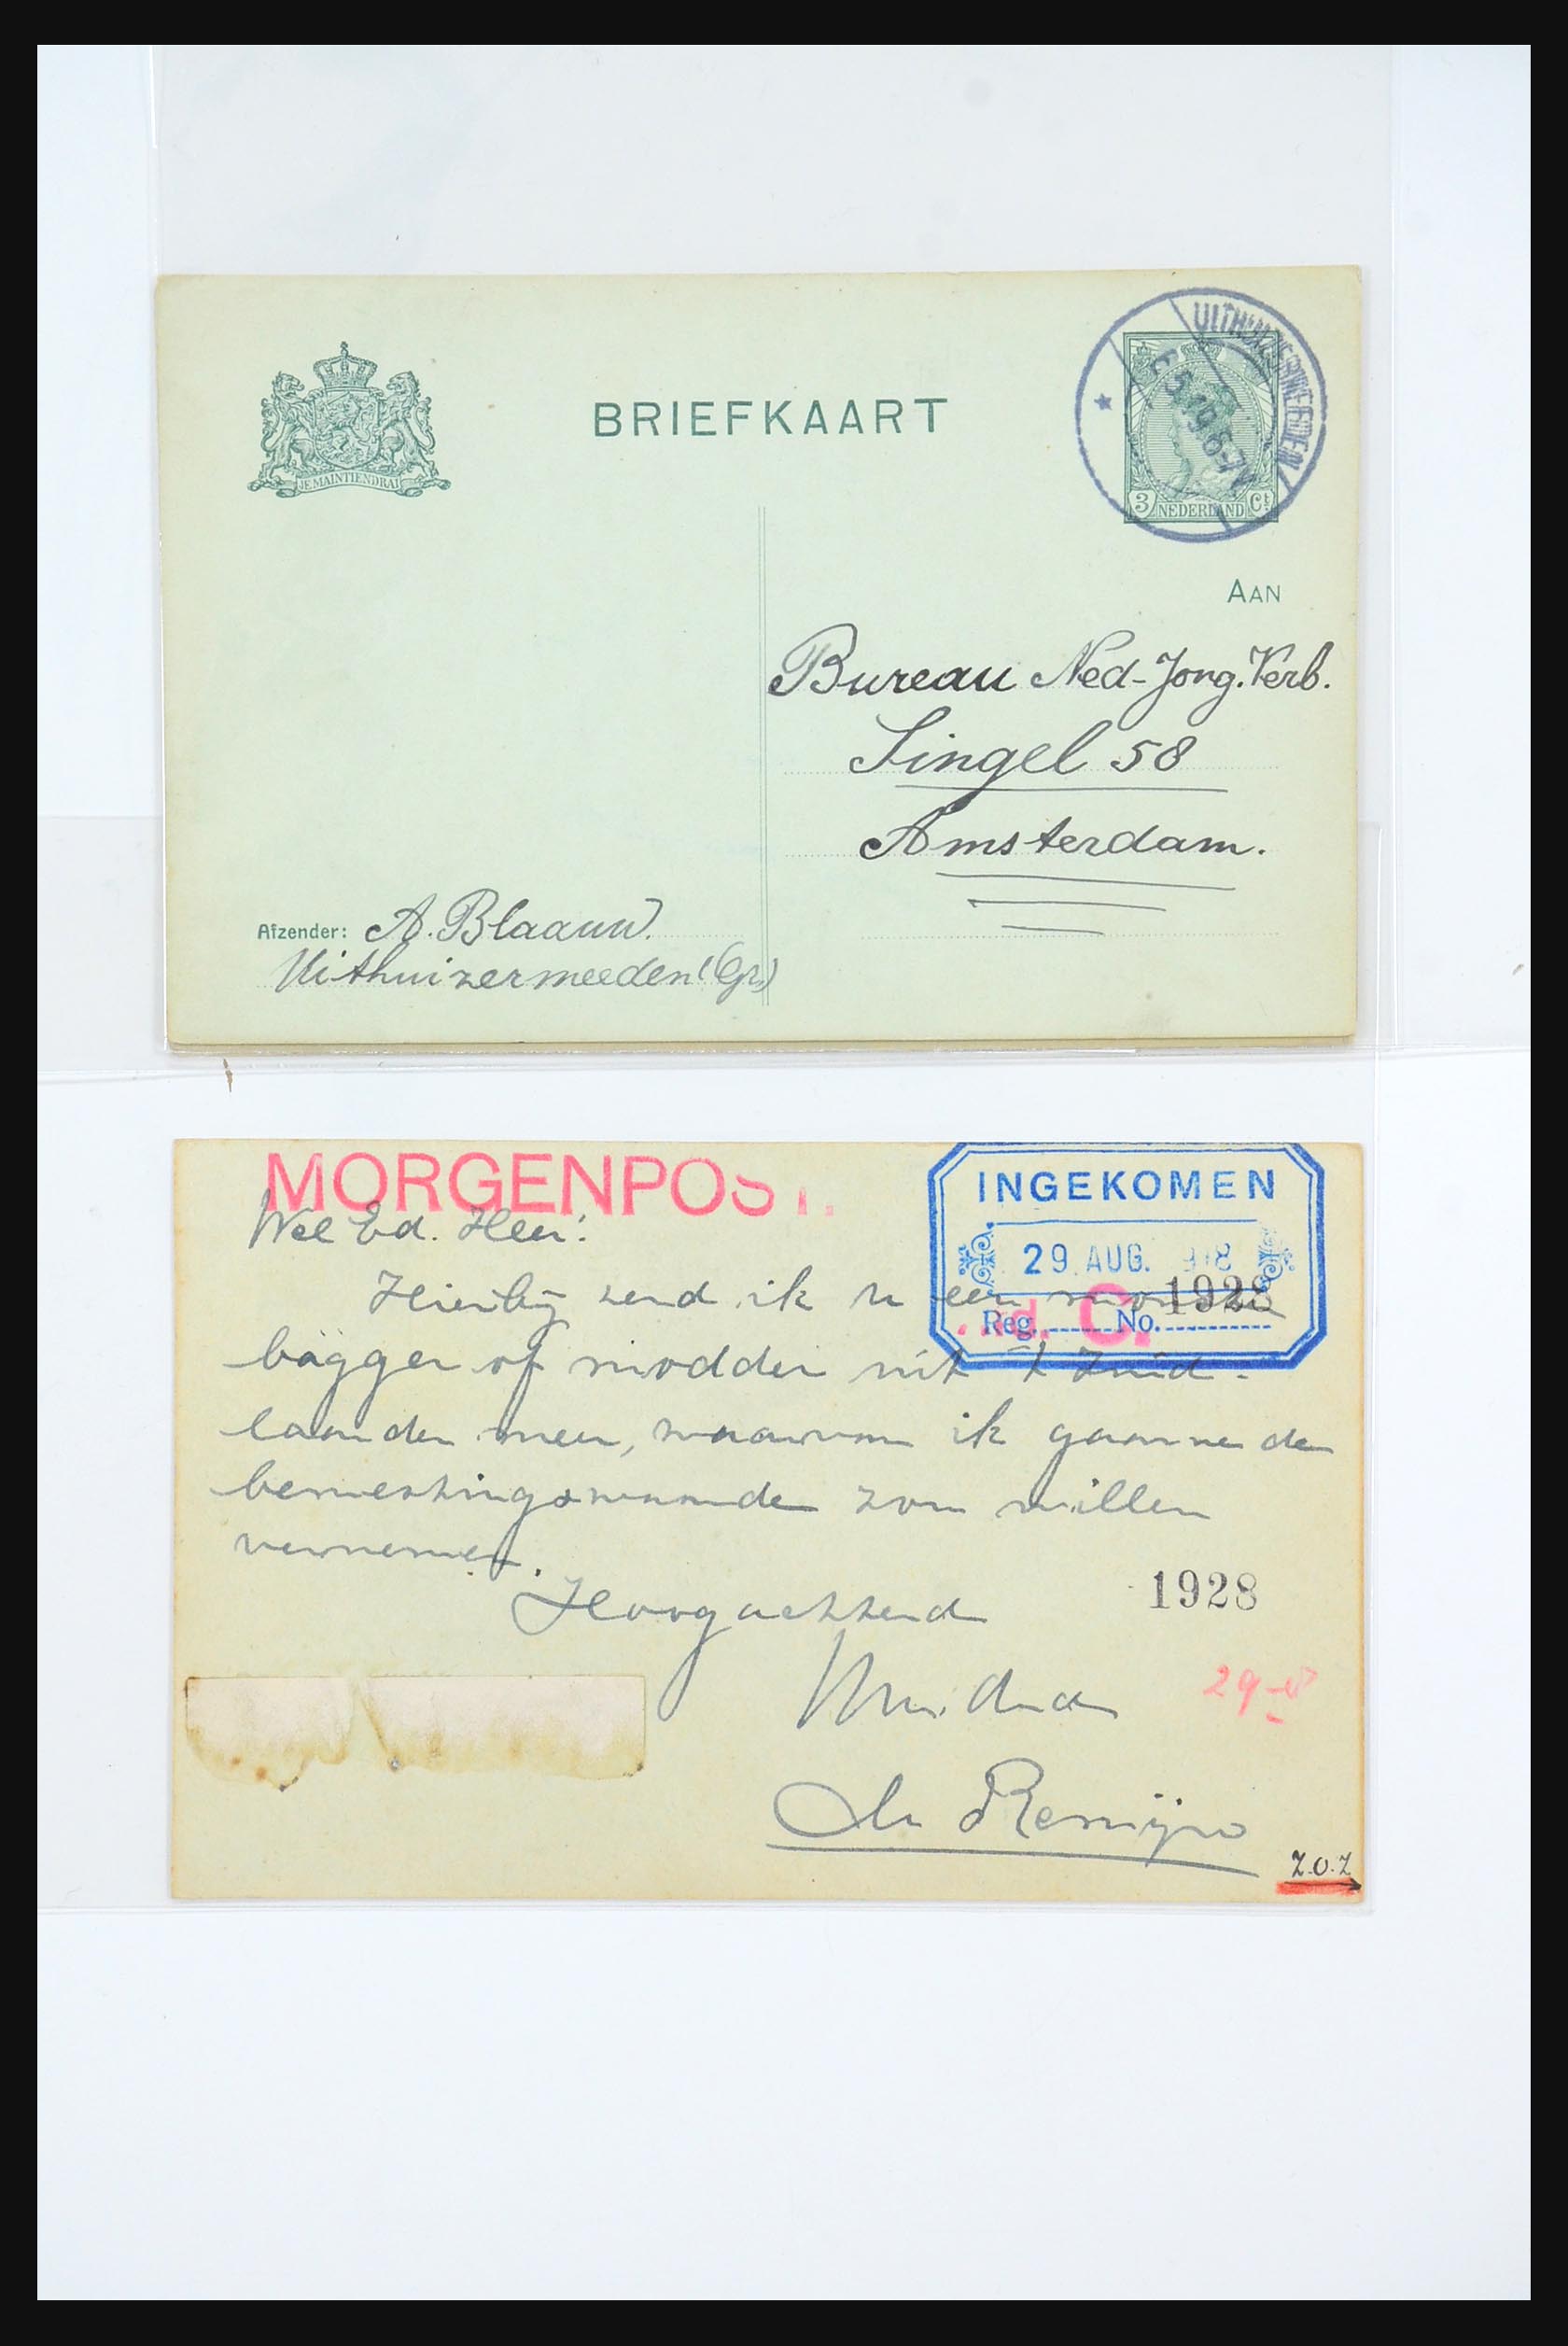 BRIEFKAART
JE MAINTIENDRAI
UITHUIZERMEEDEN
5.19.6-7V
3 NEDERLAND Ct
AAN
Bureau Ned-Jong.Verb.
Singel 58
Amsterdam.
Afzender: A. Blaauw.
Uithuizermeeden (Gr.)
MORGENPOST.
INGEKOMEN
29 AUG.
Reg. No. 1928
C.
Wel Ed. Heer!
Hierbij zend ik u een
bagger of modder uit 't Zuid-
laarder meer, waarvan ik gaarne de
bemestingswaarde zou willen
vernemen.
Hoogachtend
1928
29-8
Z.O.Z